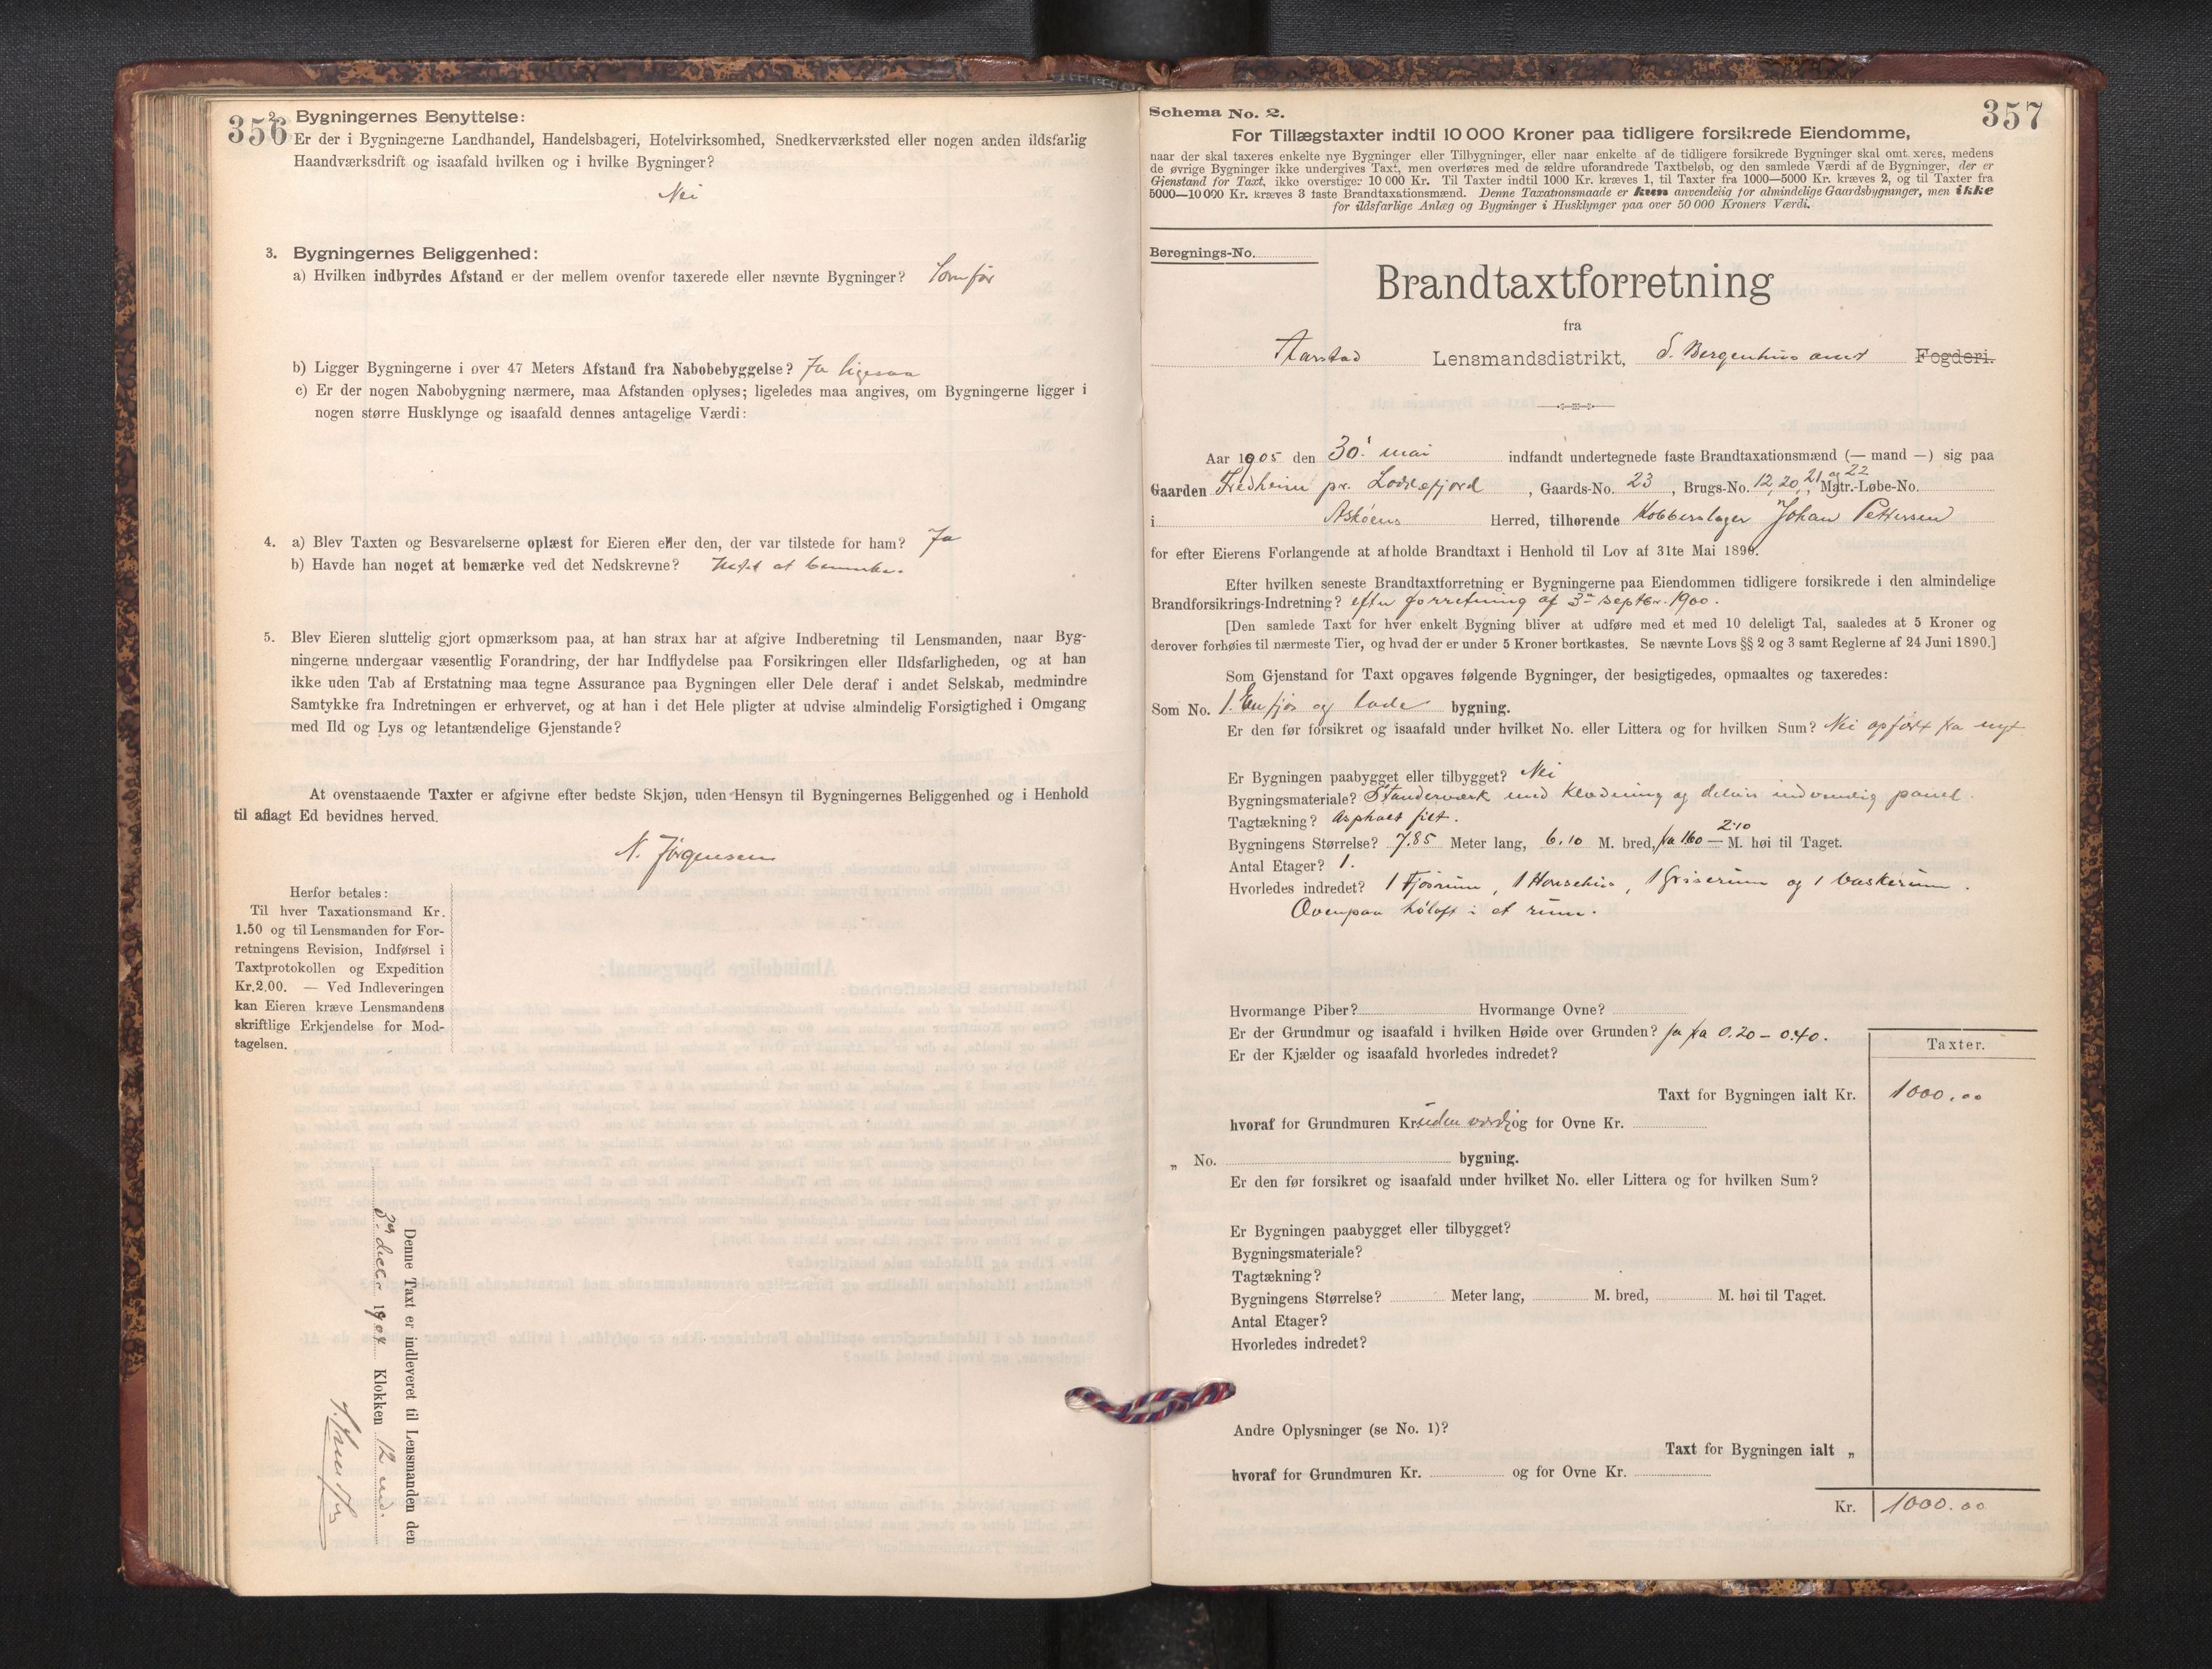 356
2. Bygningernes Benyttelse:
Er der i Bygningerne Landhandel, Handelsbageri, Hotelvirksomhed, Snedkerværksted eller nogen anden ildsfarlig
Haandværksdrift og isaafald hvilken og i hvilke Bygninger?
Nei
3. Bygningernes Beliggenhed:
a) Hvilken indbyrdes Afstand er der mellem ovenfor taxerede eller nævnte Bygninger? Som før
b) Ligger Bygningerne i over 47 Meters Afstand fra Nabobebyggelse? Ja ligesaa
c) Er der nogen Nabobygning nærmere, maa Afstanden oplyses; ligeledes maa angives, om Bygningerne ligger i
nogen større Husklynge og isaafald dennes antagelige Værdi:
4. a) Blev Taxten og Besvarelserne oplæst for Eieren eller den, der var tilstede for ham? Ja
b) Havde han noget at bemærke ved det Nedskrevne? Intet at bemærke.
5. Blev Eieren sluttelig gjort opmærksom paa, at han strax har at afgive Indberetning til Lensmanden, naar Byg-
ningerne undergaar væsentlig Forandring, der har Indflydelse paa Forsikringen eller Ildsfarligheden, og at han
ikke uden Tab af Erstatning maa tegne Assurance paa Bygningen eller Dele deraf i andet Selskab, medmindre
Samtykke fra Indretningen er erhvervet, og at han i det Hele pligter at udvise almindelig Forsigtighed i Omgang
med Ild og Lys og letantændelige Gjenstande?
At ovenstaaende Taxter er afgivne efter bedste Skjøn, uden Hensyn til Bygningernes Beliggenhed og i Henhold
til aflagt Ed bevidnes herved.
N. Jørgensen
Herfor betales:
Til hver Taxationsmand Kr.
1.50 og til Lensmanden for For-
retningens Revision, Indførsel i
Taxtprotokollen og Expedition
Kr. 2.00. — Ved Indleveringen
kan Eieren kræve Lensmandens
skriftlige Erkjendelse for Mod-
tagelsen.
Denne Taxt er indleveret til Lensmanden den
Klokken 12 mid.
357
Schema No. 2.
For Tillægstaxter indtil 10 000 Kroner paa tidligere forsikrede Eiendomme,
naar der skal taxeres enkelte nye Bygninger eller Tilbygninger, eller naar enkelte af de tidligere forsikrede Bygninger skal omt xeres, medens
de øvrige Bygninger ikke undergives Taxt, men overføres med de ældre uforandrede Taxtbeløb, og den samlede Værdi af de Bygninger, der er
Gjenstand for Taxt, ikke overstiger 10 000 Kr. Til Taxter indtil 1000 Kr. kræves 1, til Taxter fra 1000—5000 Kr. kræves 2, og til Taxter fra
5000—10 000 Kr. kræves 3 faste Brandtaxationsmænd. Denne Taxationsmaade er kun anvendelig for almindelige Gaardsbygninger, men ikke
for ildsfarlige Anlæg og Bygninger i Husklynger paa over 50 000 Kroners Værdi.
Beregnings-No.
Brandtaxtforretning
fra
Aarstad Lensmandsdistrikt, S. Bergenhus amt Fogderi.
Aar 1905 den 30. mai indfandt undertegnede faste Brandtaxationsmænd (— mand —) sig paa
Gaarden Fredheim pr. Loddefjord, Gaards-No. 23, Brugs-No. 12, 20, 21 og 22 Matr.-Løbe-No.
i Askøens Herred, tilhørende Kobberslager Johan Pettersen
for efter Eierens Forlangende at afholde Brandtaxt i Henhold til Lov af 31te Mai 1890.
Efter hvilken seneste Brandtaxtforretning er Bygningerne paa Eiendommen tidligere forsikrede i den almindelige
Brandforsikrings-Indretning? efter forretning af 3die septbr. 1900.
[Den samlede Taxt for hver enkelt Bygning bliver at udføre med et med 10 deleligt Tal, saaledes at 5 Kroner og
derover forhøies til nærmeste Tier, og hvad der er under 5 Kroner bortkastes. Se nævnte Lovs §§ 2 og 3 samt Reglerne af 24 Juni 1890.]
Som Gjenstand for Taxt opgaves følgende Bygninger, der besigtigedes, opmaaltes og taxeredes:
Som No. 1. En fjøs og lade bygning.
Er den før forsikret og isaafald under hvilket No. eller Littera og for hvilken Sum? Nei opført fra nyt
Er Bygningen paabygget eller tilbygget? Nei
Bygningsmateriale? Standerværk med klædning og delvis indvendig panel.
Tagtækning? Asphalt filt.
Bygningens Størrelse? 7.85 Meter lang, 6.10 M. bred, fra 1.60 — 2.10 M. høi til Taget.
Antal Etager? 1.
Hvorledes indredet? 1 Fjøsrum, 1 Hønsehus, 1 Griserum og 1 Vaskerum.
Ovenpaa høloft i et rum.
Hvormange Piber? Hvormange Ovne?
Er der Grundmur og isaafald i hvilken Høide over Grunden? ja fra 0.20 – 0.40.
Er der Kjælder og isaafald hvorledes indredet?
Taxter.
Taxt for Bygningen ialt Kr. 1000.00
hvoraf for Grundmuren Kr. uden værdi og for Ovne Kr.
„ No. bygning.
Er den før forsikret og isaafald under hvilket No. eller Littera og for hvilken Sum?
Er Bygningen paabygget eller tilbygget?
Bygningsmateriale?
Tagtækning?
Bygningens Størrelse? Meter lang, M. bred, M. høi til Taget.
Antal Etager?
Hvorledes indredet?
Andre Oplysninger (se No. 1)?
Taxt for Bygningen ialt „
hvoraf for Grundmuren Kr. og for Ovne Kr.
Kr. 1000.00